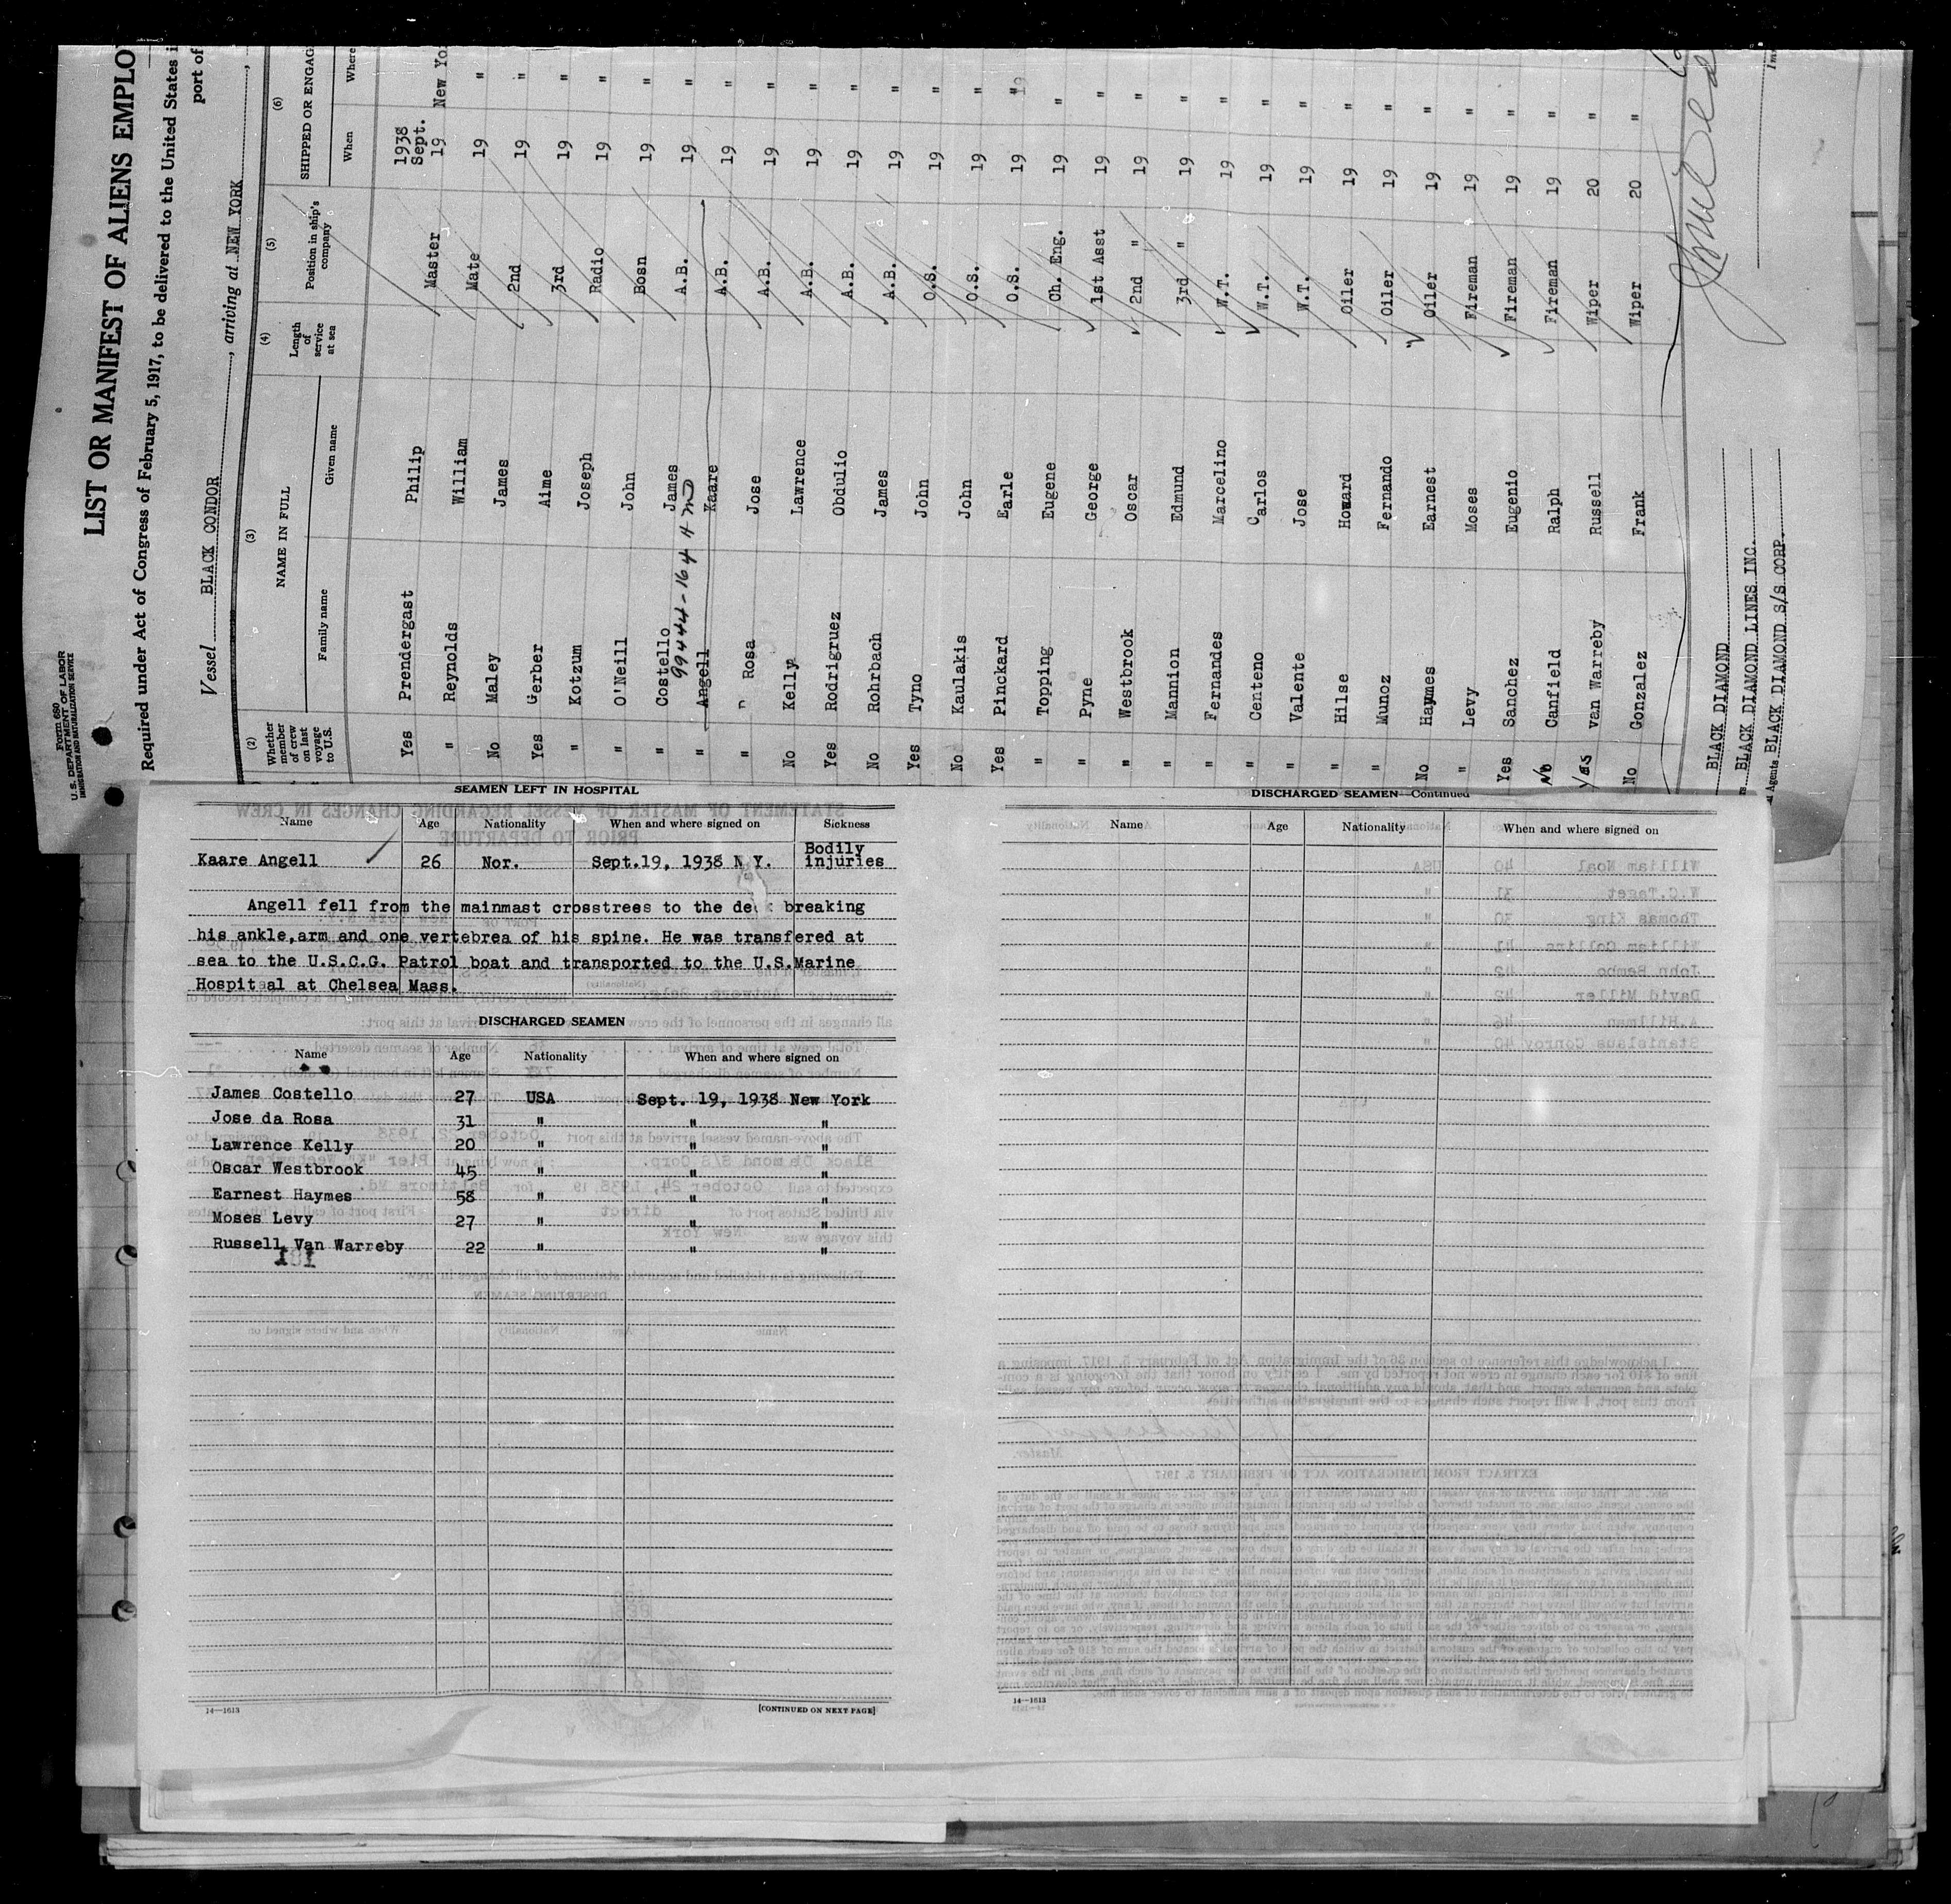 Form 680
U. S. DEPARTMENT OF LABOR
IMMIGRATION AND NATURALIZATION SERVICE
LIST OR MANIFEST OF ALIENS EMPLO
Required under Act of Congress of February 5, 1917, to be delivered to the United States i
port of
Vessel BLACK CONDOR, arriving at NEW YORK,
(2) (3) (4) (5) (6)
Whether member of crew on last voyage to U.S. NAME IN FULL Length of service at sea Position in ship's company SHIPPED OR ENGAG
Family name Given name When Where
1938
Sept.
Yes Prendergast Philip Master 19 New Yo
" Reynolds William Mate 19 "
No Maley James 2nd 19 "
Yes Gerber Aime 3rd 19 "
" Kotzum Joseph Radio 19 "
" O'Neill John Bosn 19 "
" Costello James A.B. 19 "
99444-164 H MD
" Angell Kaare A.B. 19 "
" Rosa Jose A.B. 19 "
No Kelly Lawrence A.B. 19 "
Yes Rodrigruez Obdulio A.B. 19 "
No Rohrbach James A.B. 19 "
Yes Tyno John O.S. 19 "
No Kaulakis John O.S. 19 "
Yes Pinckard Earle O.S. 19 "
" Topping Eugene Ch. Eng. 19 "
" Pyne George 1st Asst 19 "
" Westbrook Oscar 2nd " 19 "
" Mannion Edmund 3rd " 19 "
" Fernandes Marcelino W.T. 19 "
" Centeno Carlos W.T. 19 "
" Valente Jose W.T. 19 "
" Hilse Howard Oiler 19 "
" Munoz Fernando Oiler 19 "
No Haymes Earnest Oiler 19 "
" Levy Moses Fireman 19 "
Yes Sanchez Eugenio Fireman 19 "
No Canfield Ralph Fireman 19 "
Yes van Warreby Russell Wiper 20 "
No Gonzalez Frank Wiper 20 "
BLACK DIAMOND
BLACK DIAMOND LINES INC.
Agents BLACK DIAMOND S/S CORP.
SEAMEN LEFT IN HOSPITAL
Name Age Nationality When and where signed on Sickness
Kaare Angell 26 Nor. Sept.19, 1938 N Y. Bodily injuries
Angell fell from the mainmast crosstrees to the deck breaking
his ankle,arm and one vertebrea of his spine. He was transfered at
sea to the U.S.C.G. Patrol boat and transported to the U.S.Marine
Hospital at Chelsea Mass.
DISCHARGED SEAMEN
Name Age Nationality When and where signed on
James Costello 27 USA Sept. 19, 1938 New York
Jose da Rosa 31 " " "
Lawrence Kelly 20 " " "
Oscar Westbrook 45 " " "
Earnest Haymes 58 " " "
Moses Levy 27 " " "
Russell Van Warreby 22 " " "
14—1613
[CONTINUED ON NEXT PAGE]
DISCHARGED SEAMEN—Continued
Name Age Nationality When and where signed on
14—1613